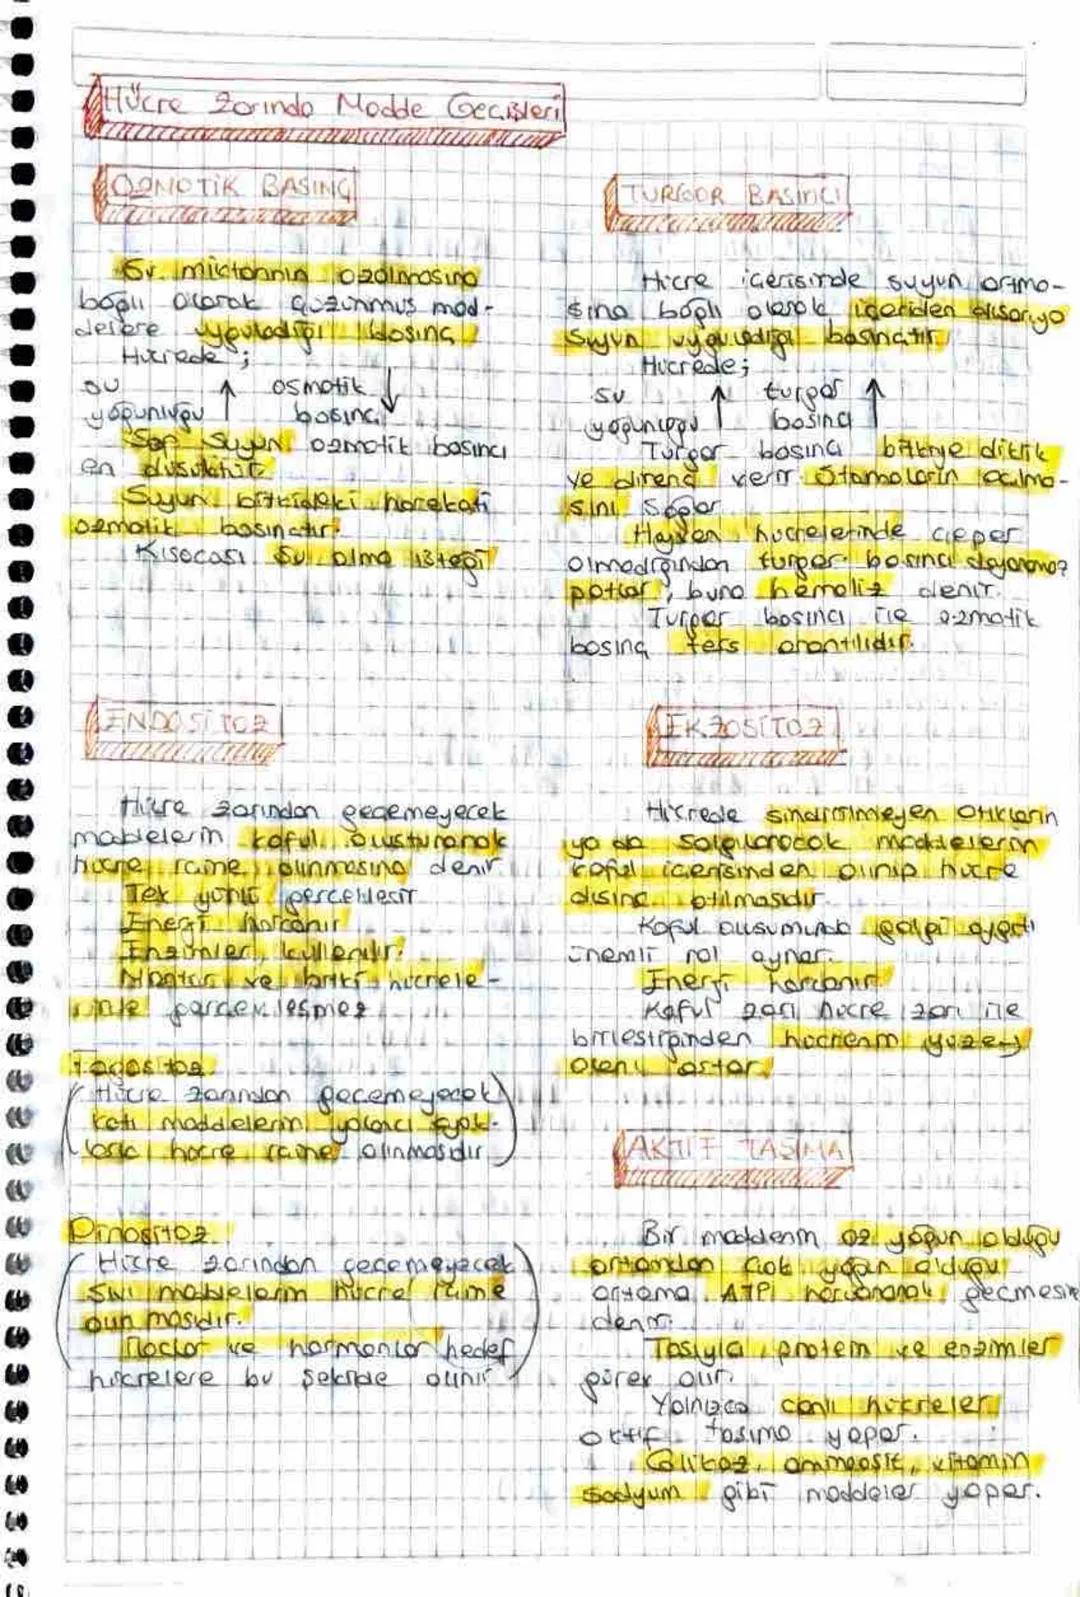 Hücre Zarında Madde Geçişleri
OZMOTİK BASINÇ
Su miktarının azalmasına
bağlı olarak çözünmüş mad-
delere uyguladığı basınç
Hücrede ;
su ↑ osmotik ↓
yoğunluğu basınç
Saf suyun ozmotik basıncı
en düşüktür
Suyun bitkideki hareketi
ozmotik basınçtır.
Kısacası su alma isteği
TURGOR BASINCI
Hücre içerisinde suyun artma-
sına bağlı olarak içeriden dışarıya
Suyun uyguladığı basınçtır.
Hücrede;
su ↑ turgor ↑
yoğunluğu basıncı
Turgor basıncı bitkiye diklik
ve direnç verir. Stomaların açılma-
sını sağlar.
Hayvan hücrelerinde çeper
olmadığından turgor basıncı dayanamaz
patlar, buna hemoliz denir.
Turgor basıncı ile ozmotik
basınç ters orantılıdır.
ENDOSİTOZ
Hücre zarından geçemeyecek
maddelerin koful oluşturarak
hücre içine alınmasına denir
Tek yönlü gerçekleşir
Enerji harcanır
Enzimler kullanılır.
Mantar ve bitki hücrele-
rinde gerçekleşmez
Fagositoz
(Hücre zarından geçemeyecek
katı maddelerin yalancı ayak-
larla hücre içine alınmasıdır)
Pinositoz
(Hücre zarından geçemeyecek
sıvı maddelerin hücre içine
alınmasıdır.
ve hormonlar hedef
hücrelere bu şekilde alınır)
EKZOSİTOZ
Hücrede sindirilmeyen atıkların
ya da salgılanacak maddelerin
koful içerisinden alınıp hücre
dışına atılmasıdır
Koful oluşumunda golgi aygıtı
önemli rol oynar.
Enerji harcanır.
Koful zarı hücre zarı ile
birleştiğinden hücrenin yüzey
alanı artar.
AKTİF TAŞIMA
Bir maddenin az yoğun olduğu
ortamdan çok yoğun olduğu
ortama ATP harcanarak geçmesine
denir.
Taşıyıcı protein ve enzimler
görev alır.
Yalnızca canlı hücreler
aktif taşıma yapar.
Glikoz, aminoasit, vitamin
sodyum gibi maddeler yapar.